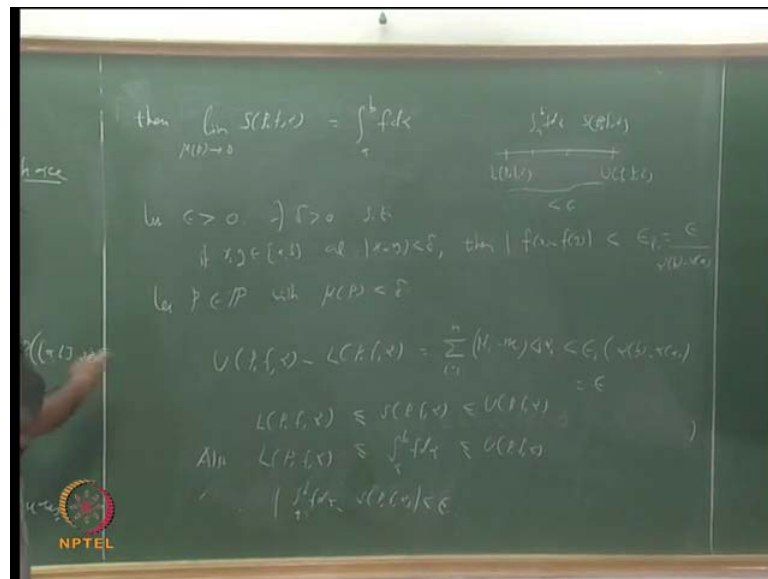 then lim S(P,f,α) = ∫_a^b f dα
μ(P)→0
∫_a^b f dα S(P,f,α)
L(P,f,α) U(P,f,α)
< ε
Let ε > 0. ∃ δ > 0 s.t.
if x,y ∈ [a,b] and |x-y| < δ, then |f(x)-f(y)| < ε_1 = ε / α(b)-α(a)
Let P ∈ ℙ with μ(P) < δ
U(P,f,α) - L(P,f,α) = Σ_{i=1}^n (M_i - m_i) Δα_i < ε_1 (α(b)-α(a))
= ε
L(P,f,α) ≤ S(P,f,α) ≤ U(P,f,α)
Also L(P,f,α) ≤ ∫_a^b f dα ≤ U(P,f,α)
|∫_a^b f dα - S(P,f,α)| < ε.
NPTEL